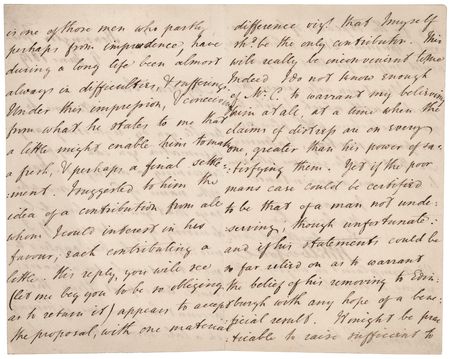 is one of those men who partly
perhaps from imprudence, have
during a long life been almost
always in difficulties, & suffering.
Under this impression, & conceiving
from what he states to me that
a little might enable him to make
a fresh, & perhaps a final settle
:ment. I suggested to him the
idea of a contribution from all
whom I could interest in his
favour, each contributing a
little. His reply, you will see
(let me beg you to be so obliging
as to return it) appears to accept
the proposal, with one material
difference viz: that I myself
shd. be the only contributor. This
will really be inconvenient to me
Indeed I do not know enough
of W. C. to warrant my believing
him at all, at a time when the
claims of distress are on every
one, greater than his power of sa-
:tisfying them. Yet if the poor
mans case could be certified
to be that of a man not unde-
:serving, though unfortunate
and if his statements could be
so far relied on as to warrant
the belief of his removing to Edin-
:burgh with any hope of a bene
:ficial result. It might be prac
:ticable to raise sufficient to